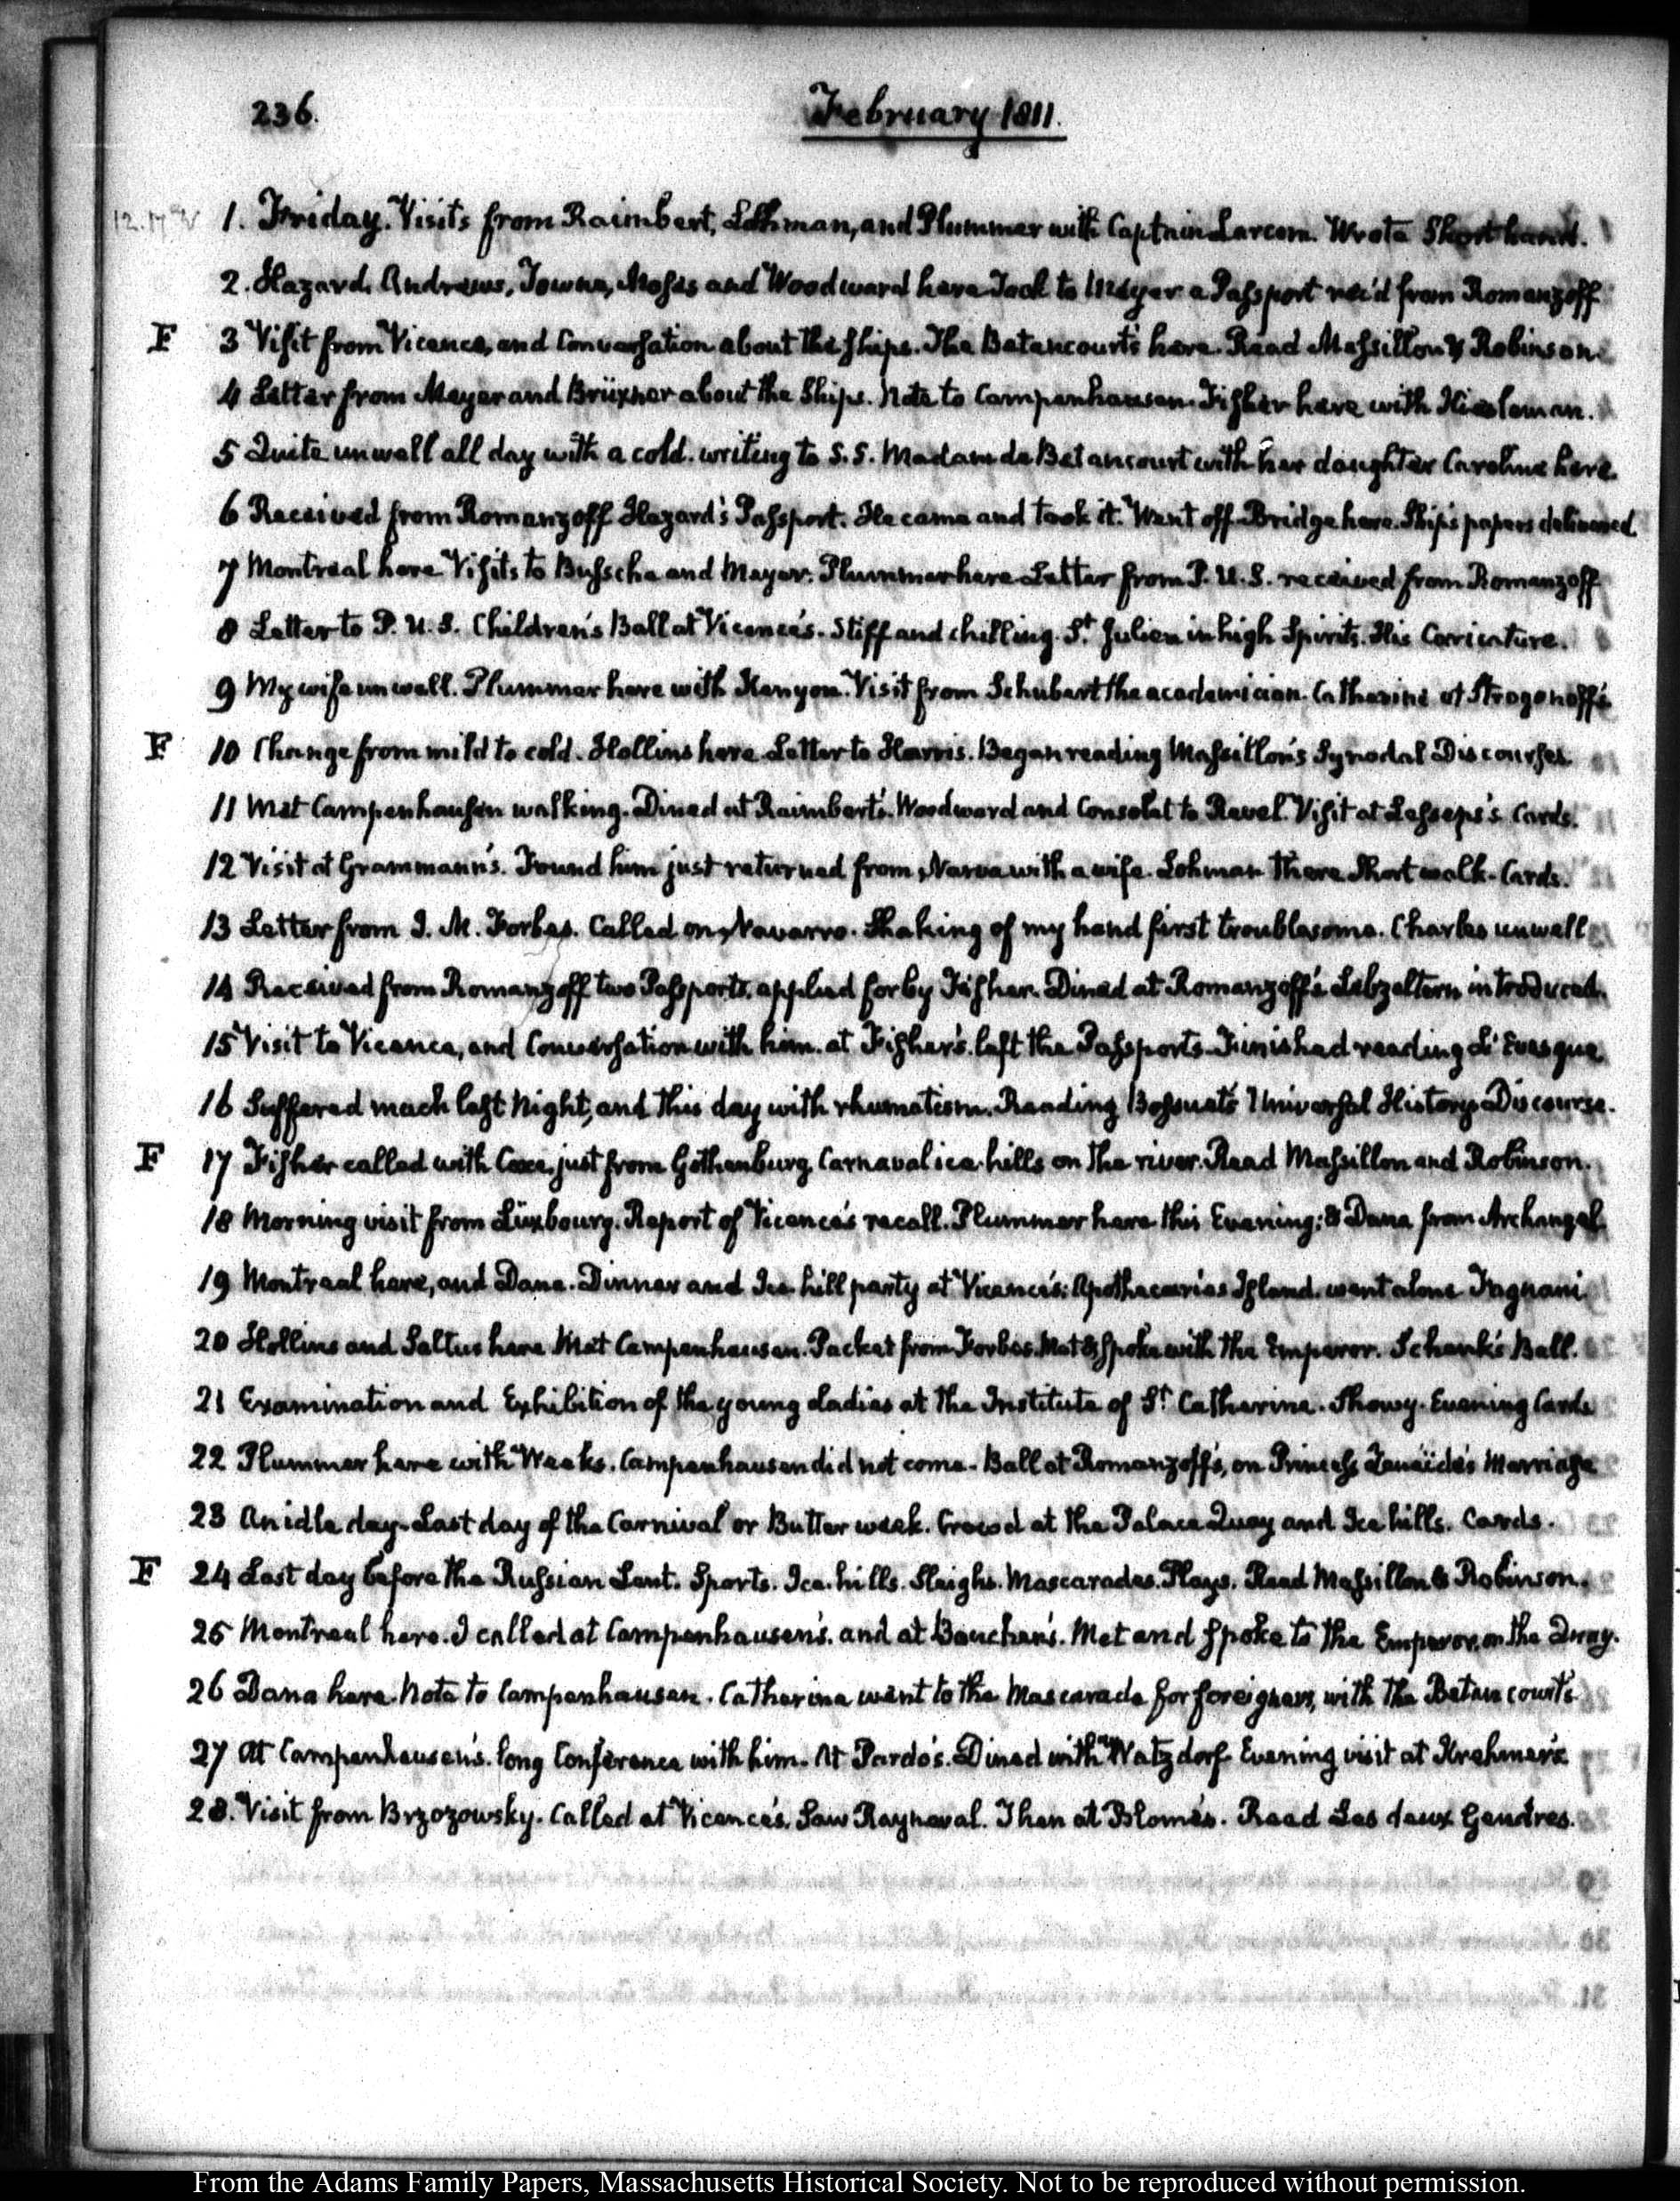 236.
February 1811.
1. Friday. Visits from Raimbert, Lohman, and Plummer with Captain Larcom. Wrote Short hand.
2. Hazard, Andrews, Towne, Moses and Woodward here Took to Meyer a Passport rec'd from Romanzoff
F 3 Visit from Vicence, and Conversation about the ships. The Betancourt's here. Read Massillon & Robinson.
4 Letter from Meyer and Brüxner about the Ships. Note to Campenhausen. Fisher here with
5 Quite unwell all day with a cold. writing to S.S. Madam de Betancourt with her daughter Caroline here.
6 Received from Romanzoff Hazard's Passport. He came and took it. Went off. Bridge here. Ship's papers delivered.
7 Montreal here Visits to Bussche and Mayer. Plummer here Letter from P. U. S. received from Romanzoff
8 Letter to P. U. S. Children's Ball at Vicence's. Stiff and chilling. St. Julien in high Spirits. His Carricature.
9 My wife unwell. Plummer here with Kenyon. Visit from Schubert the academician. Catharine at Strogonoff's
F 10 Change from mild to cold. Hollins here Letter to Harris. Began reading Massillon's Synodal Discourses.
11 Met Campenhausen walking. Dined at Raimbert's. Woodward and Consolat to Revel. Visit at Lesseps's. Cards.
12 Visit at Grammann's. Found him just returned from Narva with a wife. Lohman there Short walk. Cards.
13 Letter from J. M. Forbes. Called on Navarro. Shaking of my hand first troublesome. Charles unwell
14 Received from Romanzoff two Passports, applied for by Fisher. Dined at Romanzoff's Lebzeltern introduced.
15 Visit to Vicence, and Conversation with him. at Fisher's. left the Passports. Finished reading L'Evesque
16 Suffered much last Night, and this day with rhumatism. Reading Bossuet's Universal History Discourse.
F 17 Fisher called with Coxe, just from Gothenburg Carnaval ice-hills on the river. Read Massillon and Robinson.
18 Morning visit from Lüxbourg. Report of Vicence's recall. Plummer here this Evening: & Dana from Archangel
19 Montreal here, and Dana. Dinner and Ice hill party at Vicence's: Apothecaries Island. went alone Fagnani
20 Hollins and Saltus here Met Campenhausen. Packet from Forbes. Met & spoke with the Emperor. Schenk's Ball.
21 Examination and Exhibition of the young Ladies at the Institute of St. Catharine. Showy. Evening Cards
22 Plummer here with Weeks. Campenhausen did not come. Ball at Romanzoff's, on Princess Zenaïde's Marriage
23 An idle day. Last day of the Carnival or Butter week. Crowd at the Palace Quay and Ice hills. Cards.
F 24 Last day before the Russian Lent. Sports. Ice-hills. Sleighs. Mascarades. Plays. Read Massillon & Robinson.
25 Montreal here. I called at Campenhausen's. and at Bauchan's. Met and spoke to the Emperor, on the Quay.
26 Dana here. Note to Campenhausen. Catharine went to the Mascarade for foreigners, with the Betancourt's.
27 At Campenhausen's. long Conference with him. At Pardo's. Dined with Watzdorf. Evening visit at Krehmer's
28. Visit from Brzozowsky. Called at Vicence's, Saw Rayneval. Then at Blome's. Read Les deux Gendres.
From the Adams Family Papers, Massachusetts Historical Society. Not to be reproduced without permission.